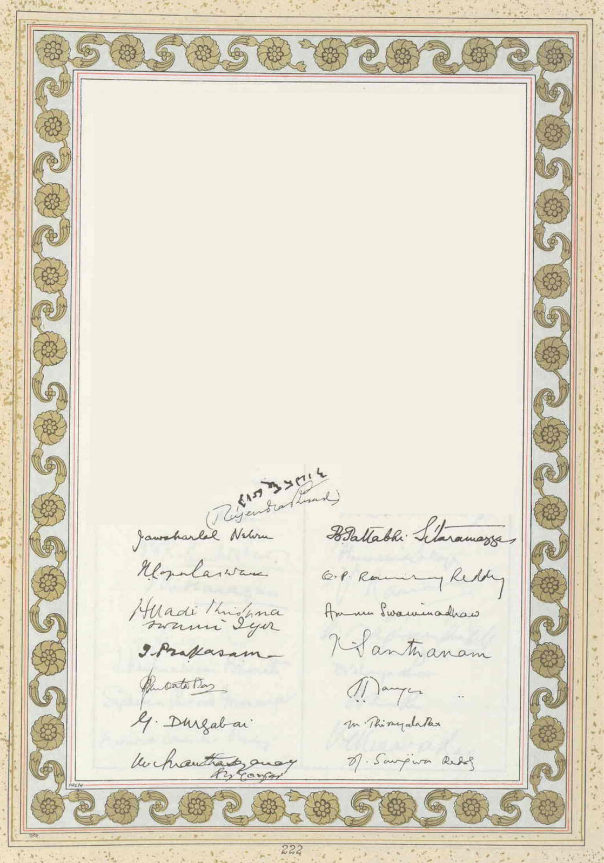 राजेन्द्र प्रसाद
(Rajendra Prasad)
Jawaharlal Nehru
B Pattabhi Sitaramayya
N Gopalaswami
O.P. Ramaswamy Reddy
Alladi Krishna
swami Iyer
Ammu Swaminadhan
T. Prakasam
K Santhanam
G. Durgabai
M Thirumala Rao
M. Ananthasayanam
Ayyangar
N. Sanjiva Reddy
222